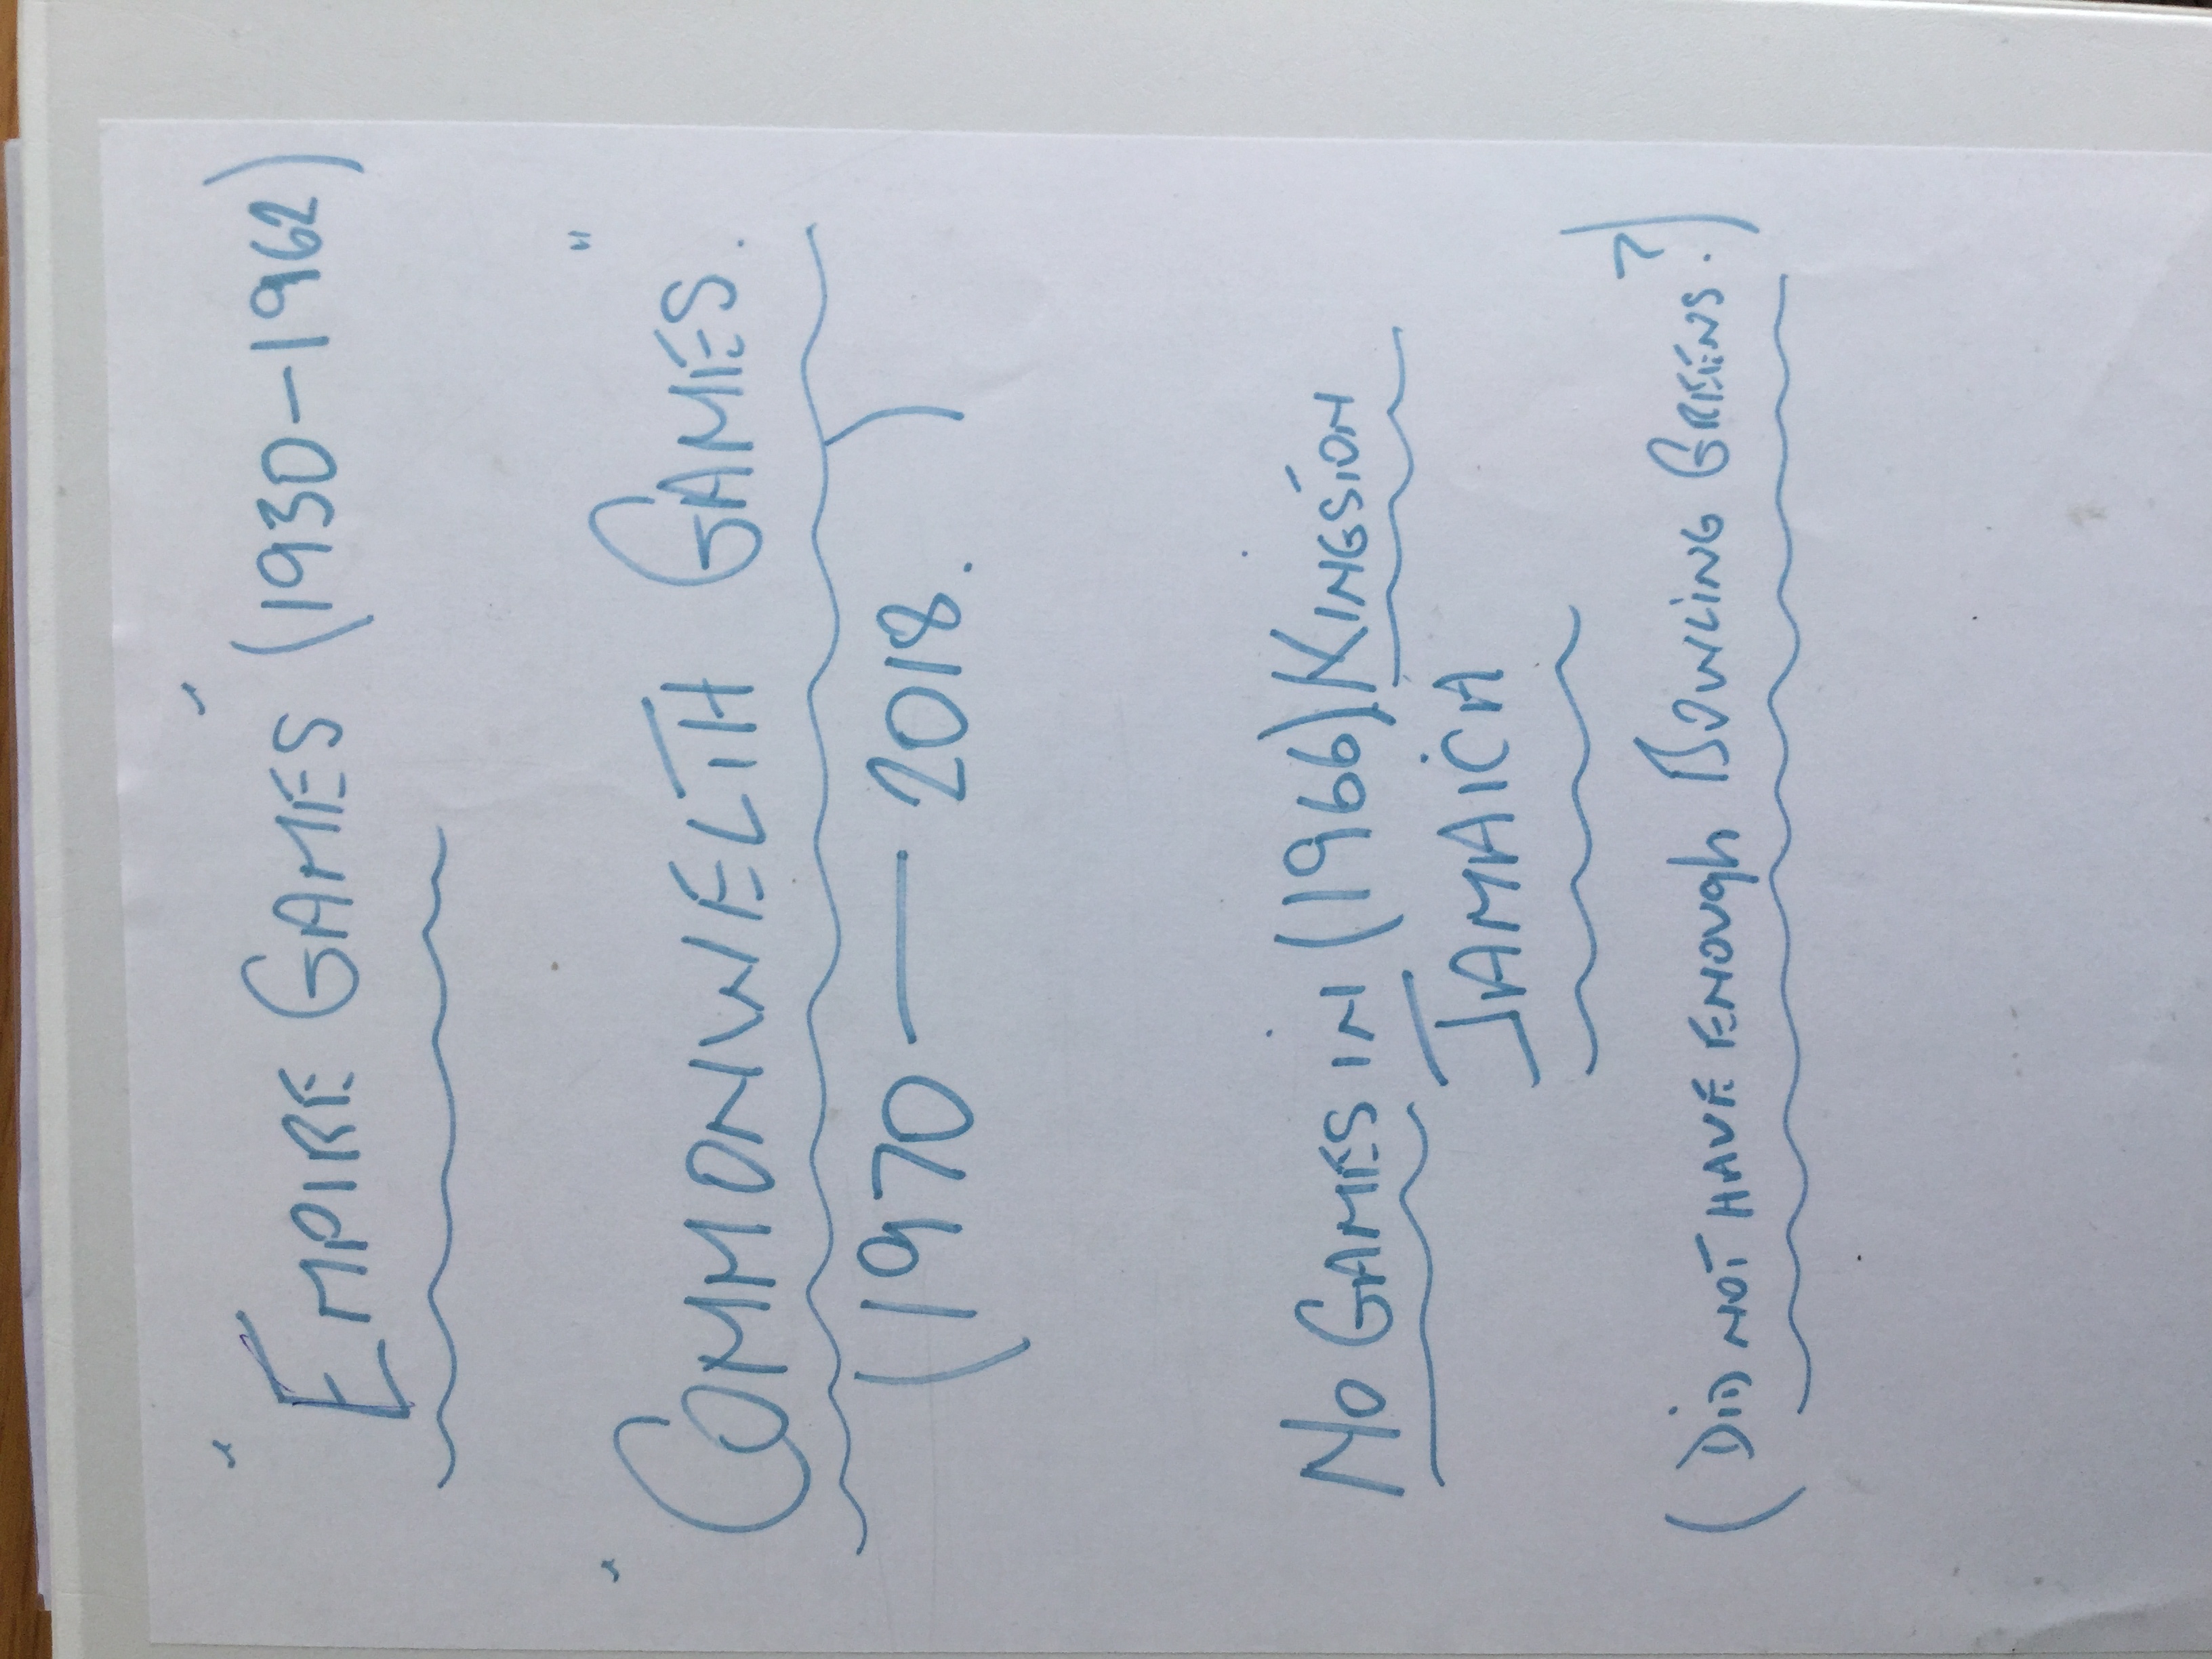 "EMPIRE GAMES" (1930-1962)
"COMMONWELTH GAMES."
(1970 — 2018.)
NO GAMES IN (1966) KINGSTON
JAMAICA
(DID NOT HAVE ENOUGH BOWLING GREENS.?)